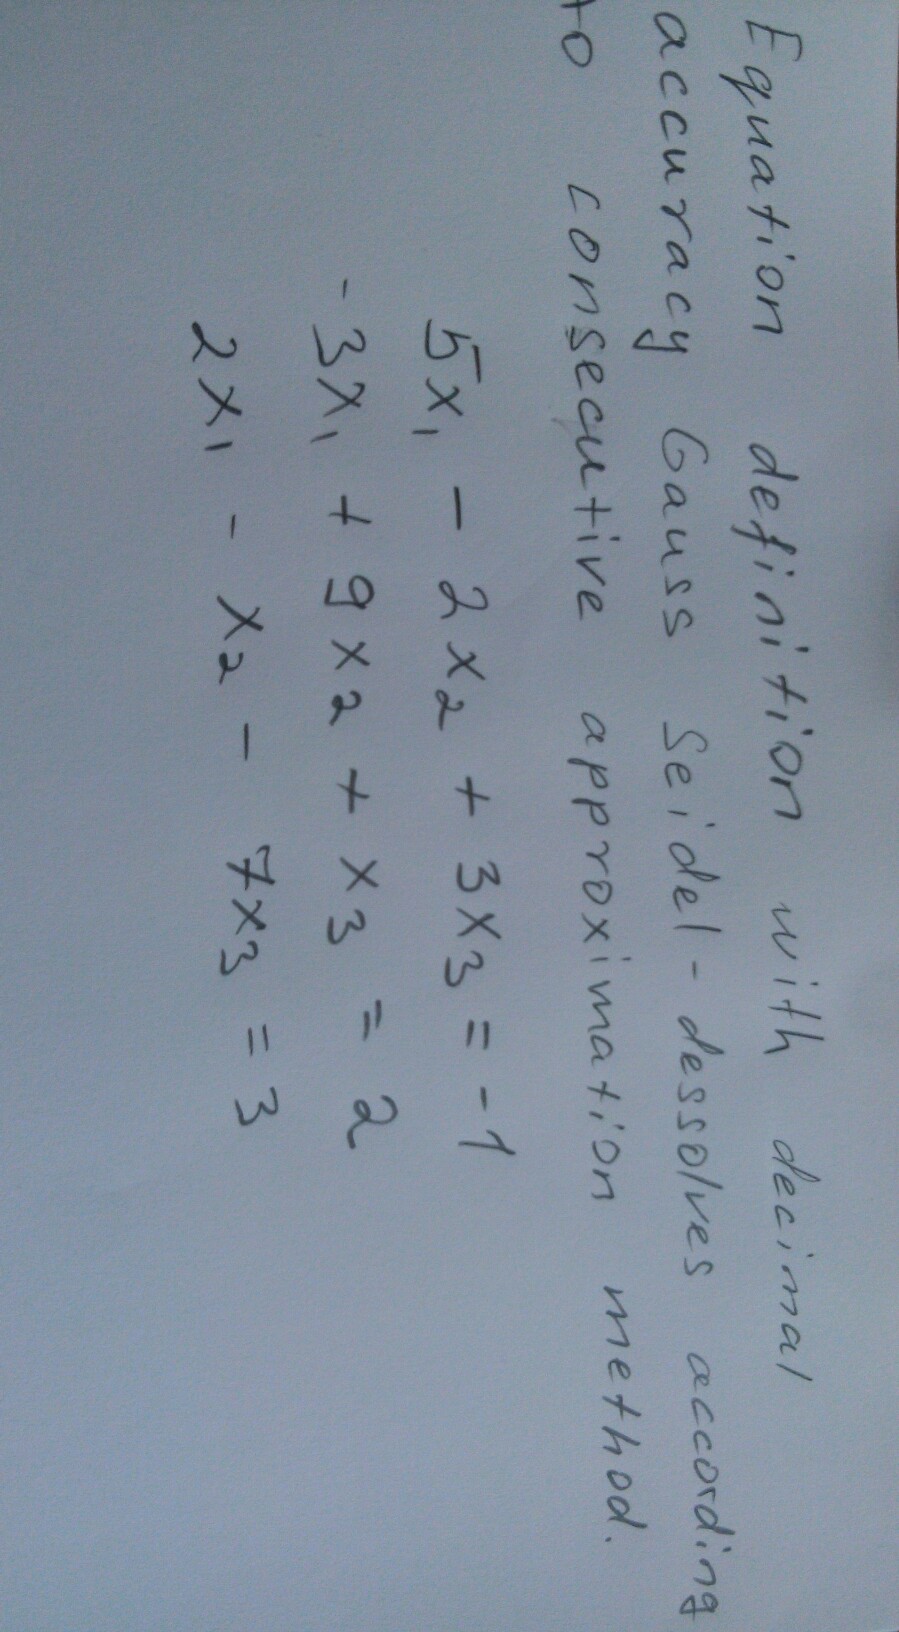 Equation definition with decimal
accuracy Gauss Seidel - dessolves according
to consecutive approximation method.
5x₁ - 2x₂ + 3x₃ = -1
-3x₁ + 9x₂ + x₃ = 2
2x₁ - x₂ - 7x₃ = 3